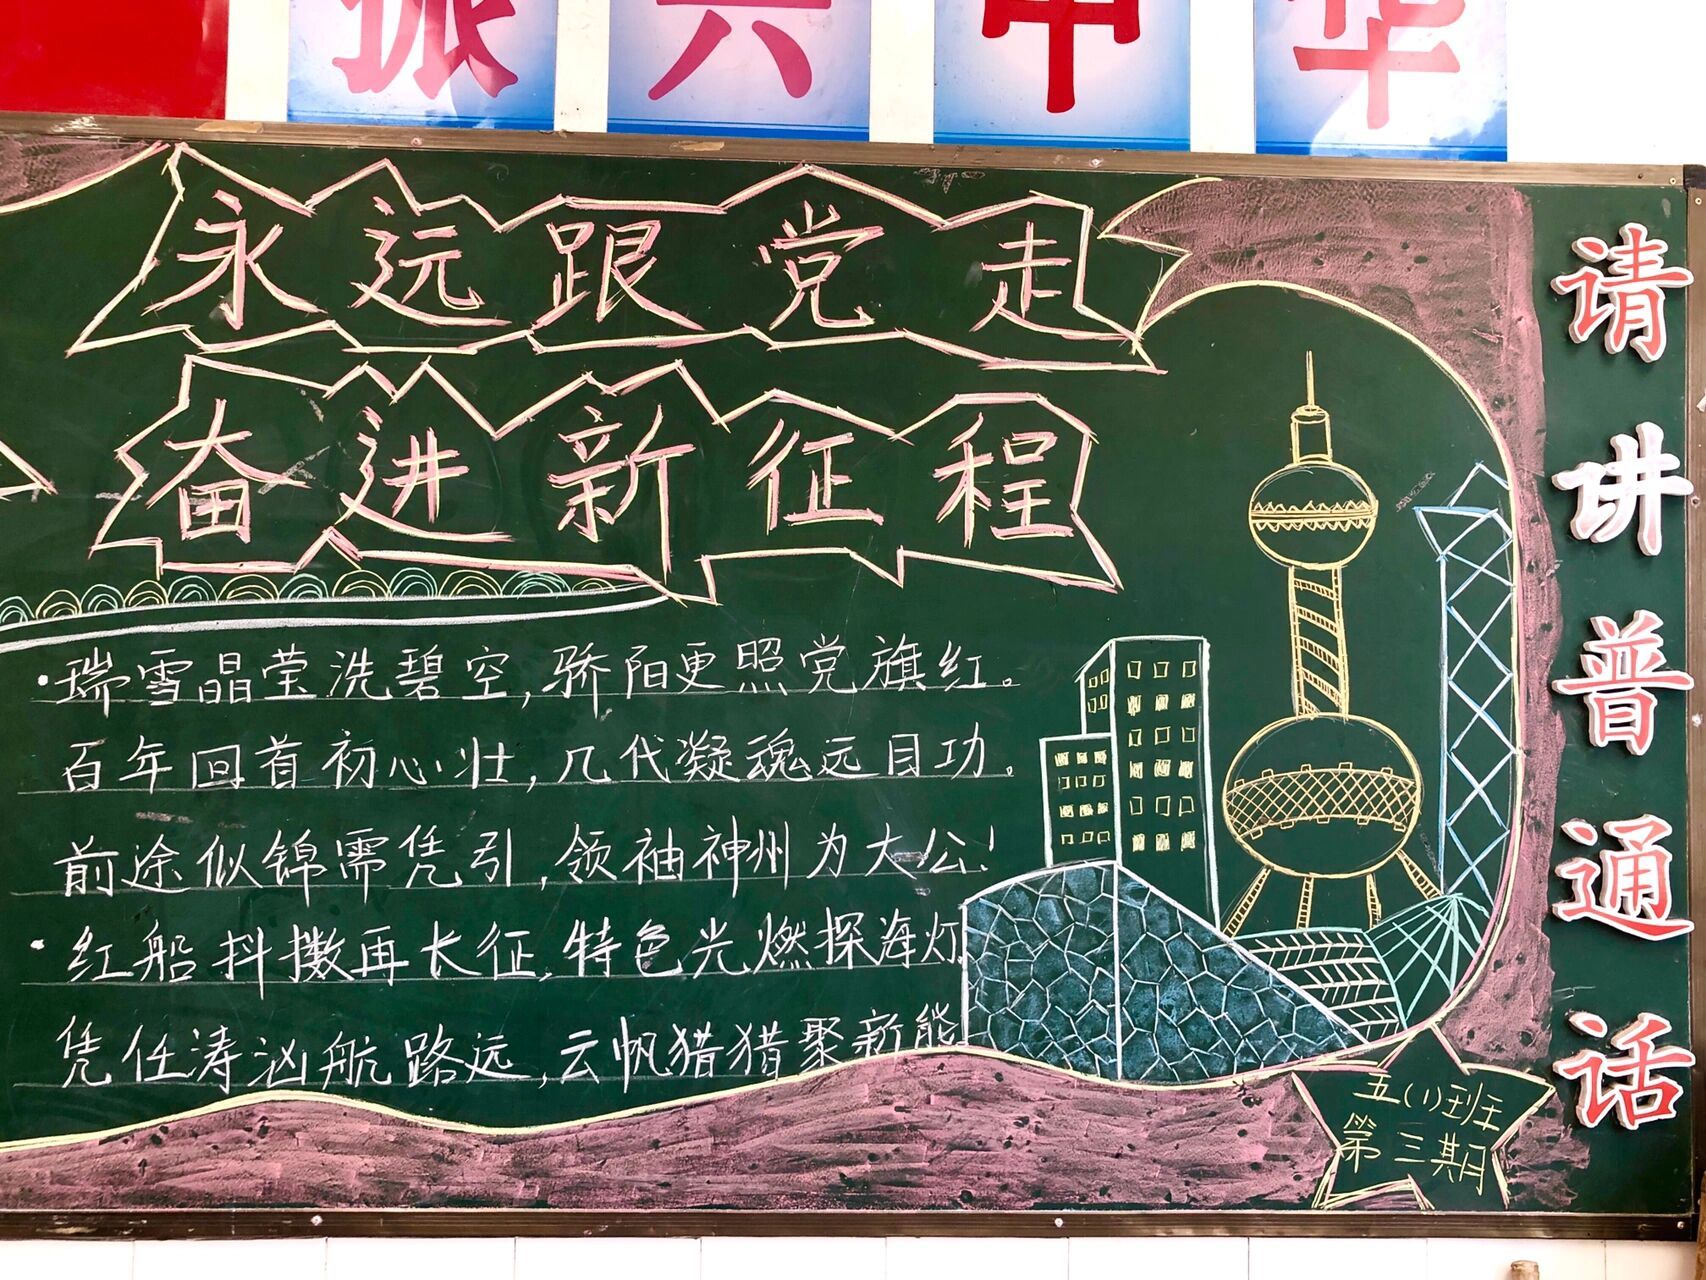 振兴中华
永远跟党走
奋进新征程
·瑞雪晶莹洗碧空,骄阳更照党旗红。
百年回首初心壮,几代凝魂远目功。
前途似锦需凭引,领袖神州为大公!
·红船抖擞再长征,特色光燃探海灯
凭任涛汹航路远,云帆猎猎聚新能
五(1)班
第三期
请讲普通话